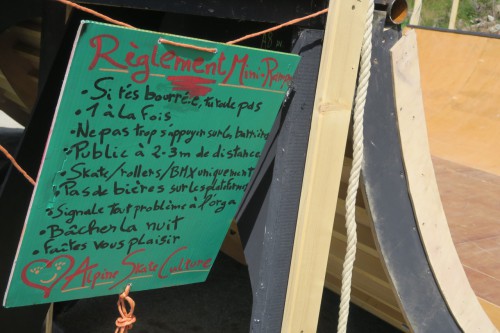 Règlement Mini-Ramp
• Si t'es bourré.e, tu ride pas
• 1 à la fois
• Ne pas trop s'appuyer sur les barrières
• Public à 2-3m de distance
• Skate/rollers/BMX uniquement
• Pas de bières sur les plateformes
• Signale tout problème à l'orga
• Bâcher la nuit
• Faîtes vous plaisir
Alpine Skate Culture